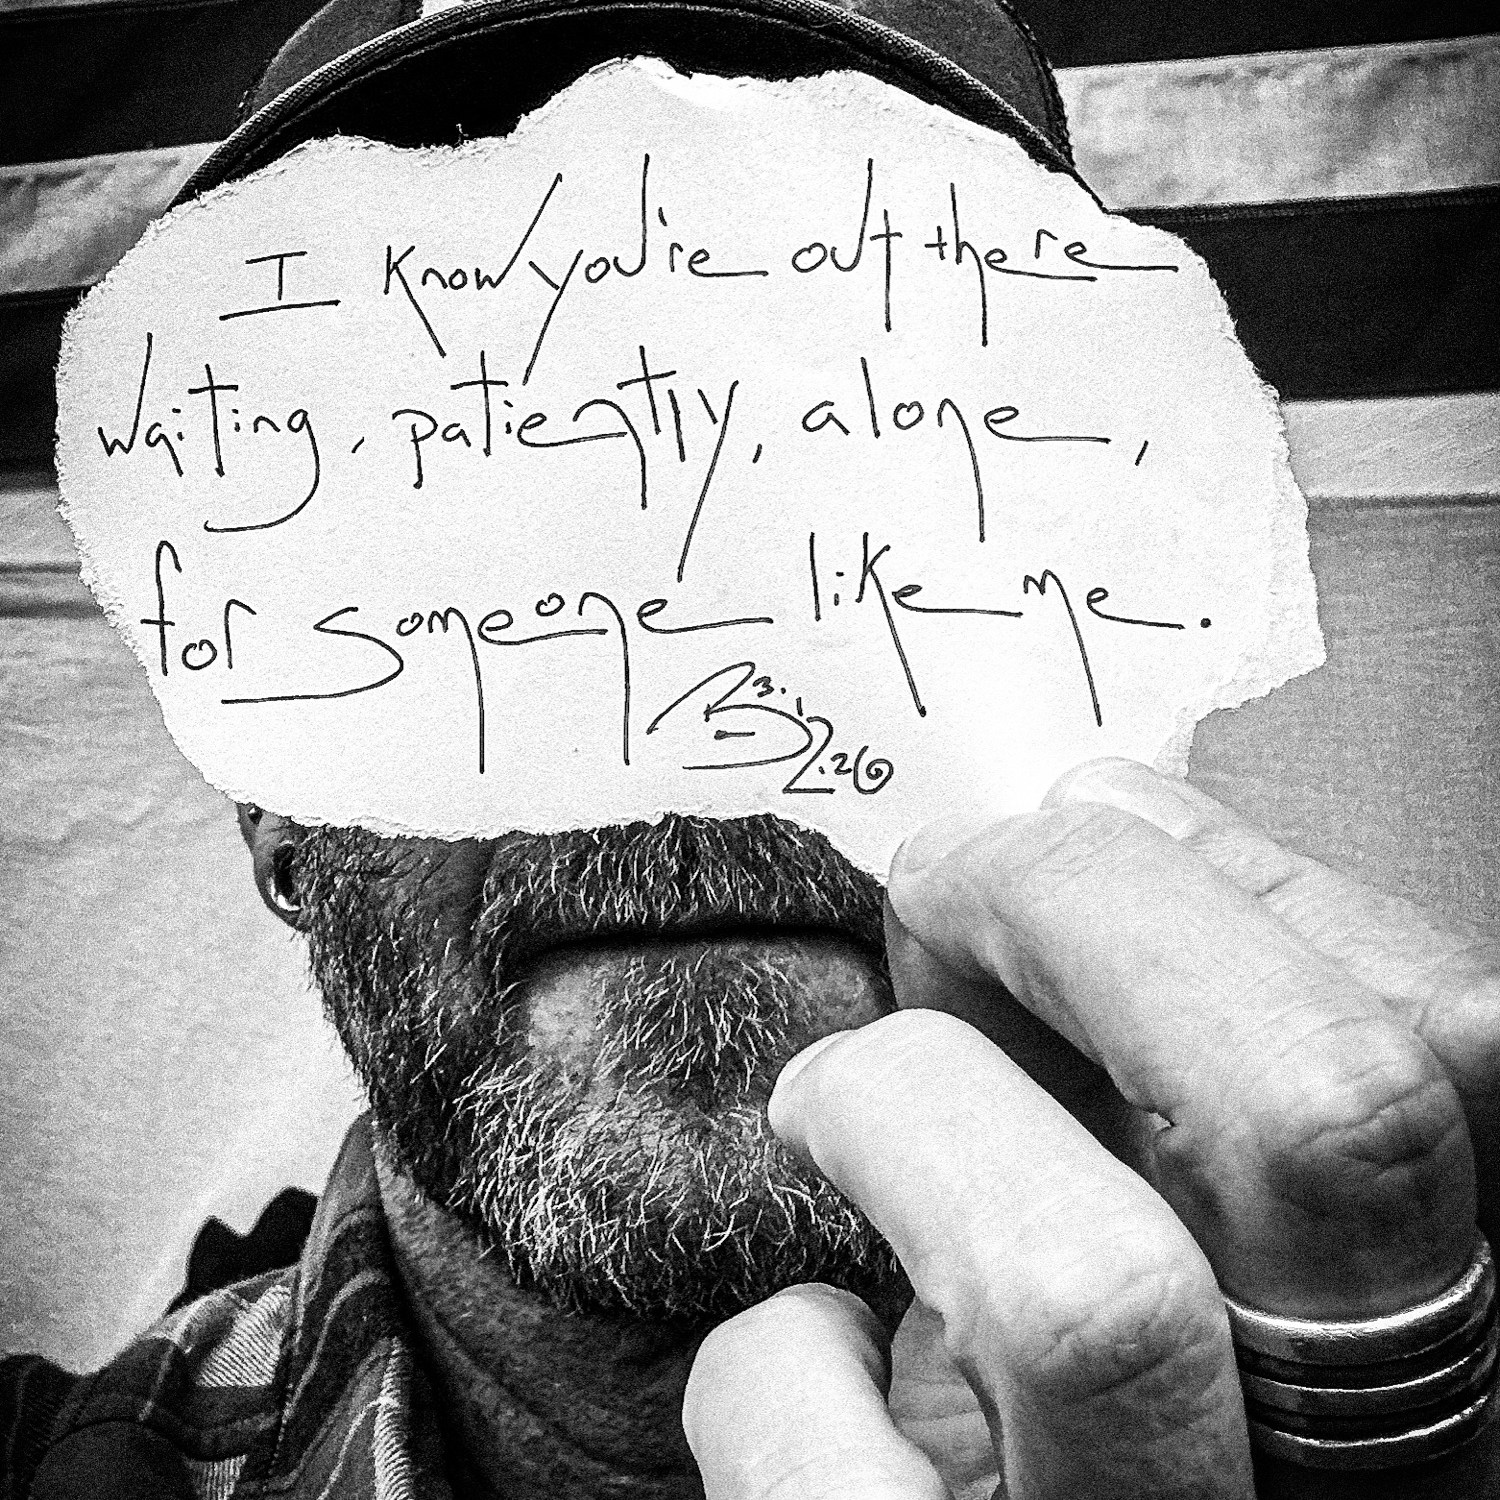 I know you're out there
waiting, patiently, alone,
for someone like me.